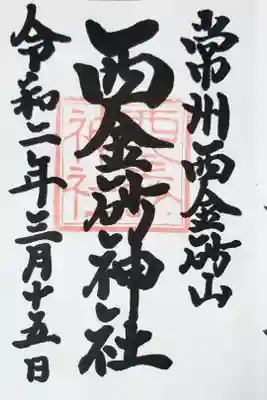 常州西金砂山
西金砂神社
令和二年三月十五日